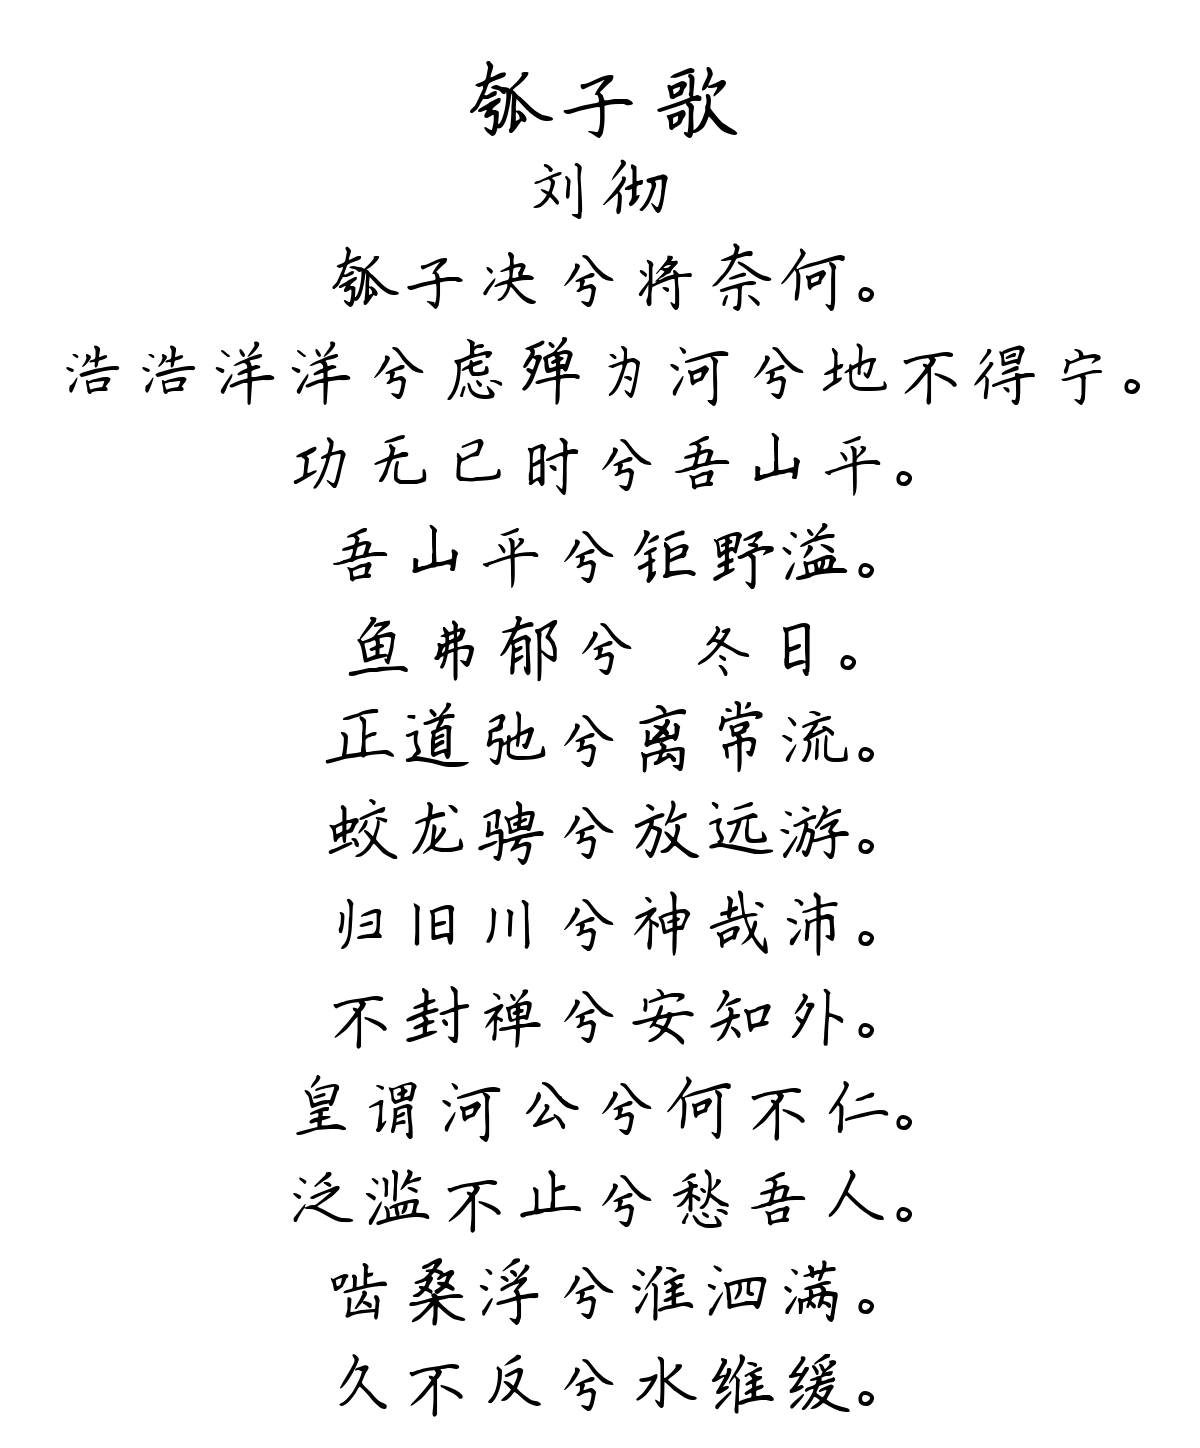 瓠子歌
刘彻
瓠子决兮将奈何。
浩浩洋洋兮虑殚为河兮地不得宁。
功无已时兮吾山平。
吾山平兮钜野溢。
鱼弗郁兮 冬日。
正道弛兮离常流。
蛟龙骋兮放远游。
归旧川兮神哉沛。
不封禅兮安知外。
皇谓河公兮何不仁。
泛滥不止兮愁吾人。
啮桑浮兮淮泗满。
久不反兮水维缓。